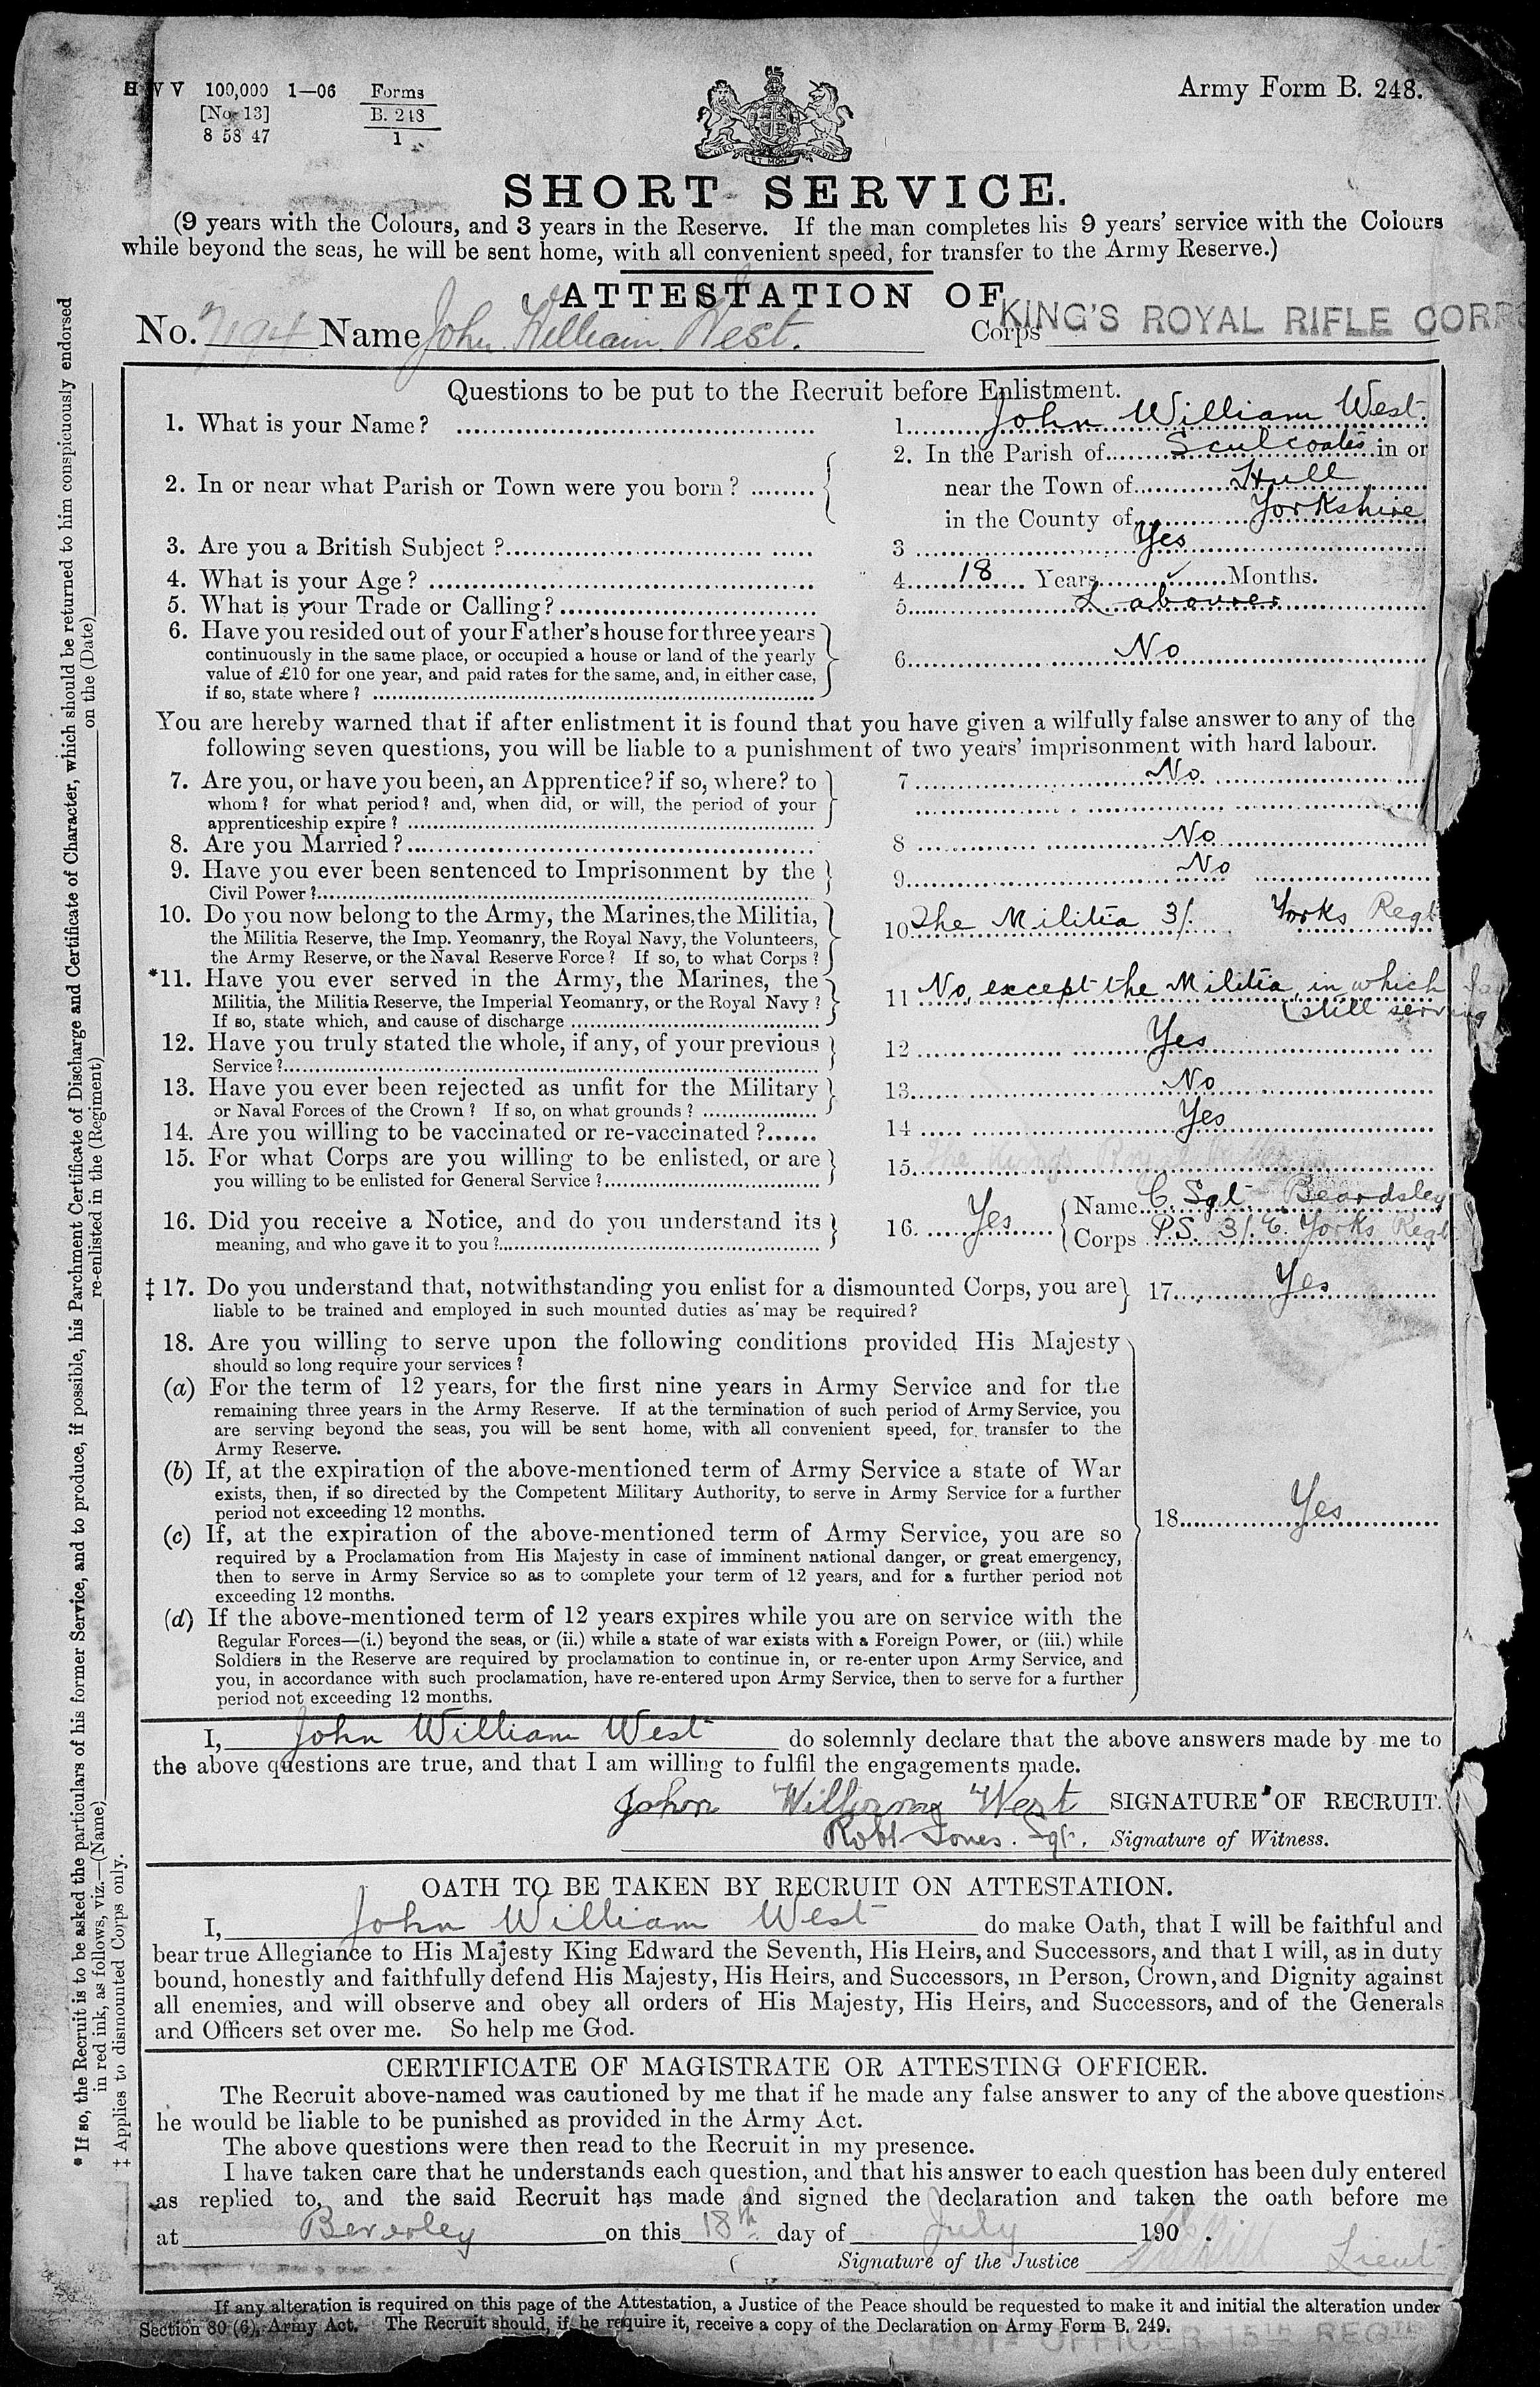 H W V 100,000 1—06 Forms
[No 13] B. 248
8 58 47 1
Army Form B. 248.
SHORT SERVICE.
(9 years with the Colours, and 3 years in the Reserve. If the man completes his 9 years' service with the Colours
while beyond the seas, he will be sent home, with all convenient speed, for transfer to the Army Reserve.)
ATTESTATION OF
No. 7194 Name John William West. Corps KING'S ROYAL RIFLE CORPS
Questions to be put to the Recruit before Enlistment.
1. What is your Name? 1. John William West.
2. In or near what Parish or Town were you born? 2. In the Parish of Sculcoates in or
near the Town of Hull
in the County of Yorkshire
3. Are you a British Subject? 3 Yes
4. What is your Age? 4. 18 Years ✓ Months.
5. What is your Trade or Calling? 5. Labourer
6. Have you resided out of your Father's house for three years
continuously in the same place, or occupied a house or land of the yearly 6. No
value of £10 for one year, and paid rates for the same, and, in either case,
if so, state where?
You are hereby warned that if after enlistment it is found that you have given a wilfully false answer to any of the
following seven questions, you will be liable to a punishment of two years' imprisonment with hard labour.
7. Are you, or have you been, an Apprentice? if so, where? to 7 No
whom? for what period? and, when did, or will, the period of your
apprenticeship expire?
8. Are you Married? 8 No
9. Have you ever been sentenced to Imprisonment by the 9. No
Civil Power?
10. Do you now belong to the Army, the Marines, the Militia, 10. The Militia 3/. Yorks Regt
the Militia Reserve, the Imp. Yeomanry, the Royal Navy, the Volunteers,
the Army Reserve, or the Naval Reserve Force? If so, to what Corps?
*11. Have you ever served in the Army, the Marines, the 11 No, except the Militia, in which I am
Militia, the Militia Reserve, the Imperial Yeomanry, or the Royal Navy? (still serving
If so, state which, and cause of discharge
12. Have you truly stated the whole, if any, of your previous 12 Yes
Service?
13. Have you ever been rejected as unfit for the Military 13. No
or Naval Forces of the Crown? If so, on what grounds?
14. Are you willing to be vaccinated or re-vaccinated? 14 Yes
15. For what Corps are you willing to be enlisted, or are 15. The King's Royal Rifle
you willing to be enlisted for General Service?
16. Did you receive a Notice, and do you understand its 16. Yes Name C. Sgt Beardsley
meaning, and who gave it to you? Corps P.S. 3/. E. Yorks Regt
‡ 17. Do you understand that, notwithstanding you enlist for a dismounted Corps, you are 17. Yes
liable to be trained and employed in such mounted duties as may be required?
18. Are you willing to serve upon the following conditions provided His Majesty
should so long require your services?
(a) For the term of 12 years, for the first nine years in Army Service and for the
remaining three years in the Army Reserve. If at the termination of such period of Army Service, you
are serving beyond the seas, you will be sent home, with all convenient speed, for transfer to the
Army Reserve.
(b) If, at the expiration of the above-mentioned term of Army Service a state of War
exists, then, if so directed by the Competent Military Authority, to serve in Army Service for a further
period not exceeding 12 months. 18. Yes
(c) If, at the expiration of the above-mentioned term of Army Service, you are so
required by a Proclamation from His Majesty in case of imminent national danger, or great emergency,
then to serve in Army Service so as to complete your term of 12 years, and for a further period not
exceeding 12 months.
(d) If the above-mentioned term of 12 years expires while you are on service with the
Regular Forces—(i.) beyond the seas, or (ii.) while a state of war exists with a Foreign Power, or (iii.) while
Soldiers in the Reserve are required by proclamation to continue in, or re-enter upon Army Service, and
you, in accordance with such proclamation, have re-entered upon Army Service, then to serve for a further
period not exceeding 12 months.
I, John William West do solemnly declare that the above answers made by me to
the above questions are true, and that I am willing to fulfil the engagements made.
John William West SIGNATURE OF RECRUIT.
Robt Jones. Sgt. Signature of Witness.
OATH TO BE TAKEN BY RECRUIT ON ATTESTATION.
I, John William West do make Oath, that I will be faithful and
bear true Allegiance to His Majesty King Edward the Seventh, His Heirs, and Successors, and that I will, as in duty
bound, honestly and faithfully defend His Majesty, His Heirs, and Successors, in Person, Crown, and Dignity against
all enemies, and will observe and obey all orders of His Majesty, His Heirs, and Successors, and of the Generals
and Officers set over me. So help me God.
CERTIFICATE OF MAGISTRATE OR ATTESTING OFFICER.
The Recruit above-named was cautioned by me that if he made any false answer to any of the above questions
he would be liable to be punished as provided in the Army Act.
The above questions were then read to the Recruit in my presence.
I have taken care that he understands each question, and that his answer to each question has been duly entered
as replied to, and the said Recruit has made and signed the declaration and taken the oath before me
at Beverley on this 18th day of July 190 .
Signature of the Justice Lieut
If any alteration is required on this page of the Attestation, a Justice of the Peace should be requested to make it and initial the alteration under
Section 80 (6), Army Act. The Recruit should, if he require it, receive a copy of the Declaration on Army Form B. 249.
OFFICER 15TH REGTL
* If so, the Recruit is to be asked the particulars of his former Service, and to produce, if possible, his Parchment Certificate of Discharge and Certificate of Character, which should be returned to him conspicuously endorsed
in red ink, as follows, viz.—(Name) re-enlisted in the (Regiment) on the (Date)
‡ Applies to dismounted Corps only.